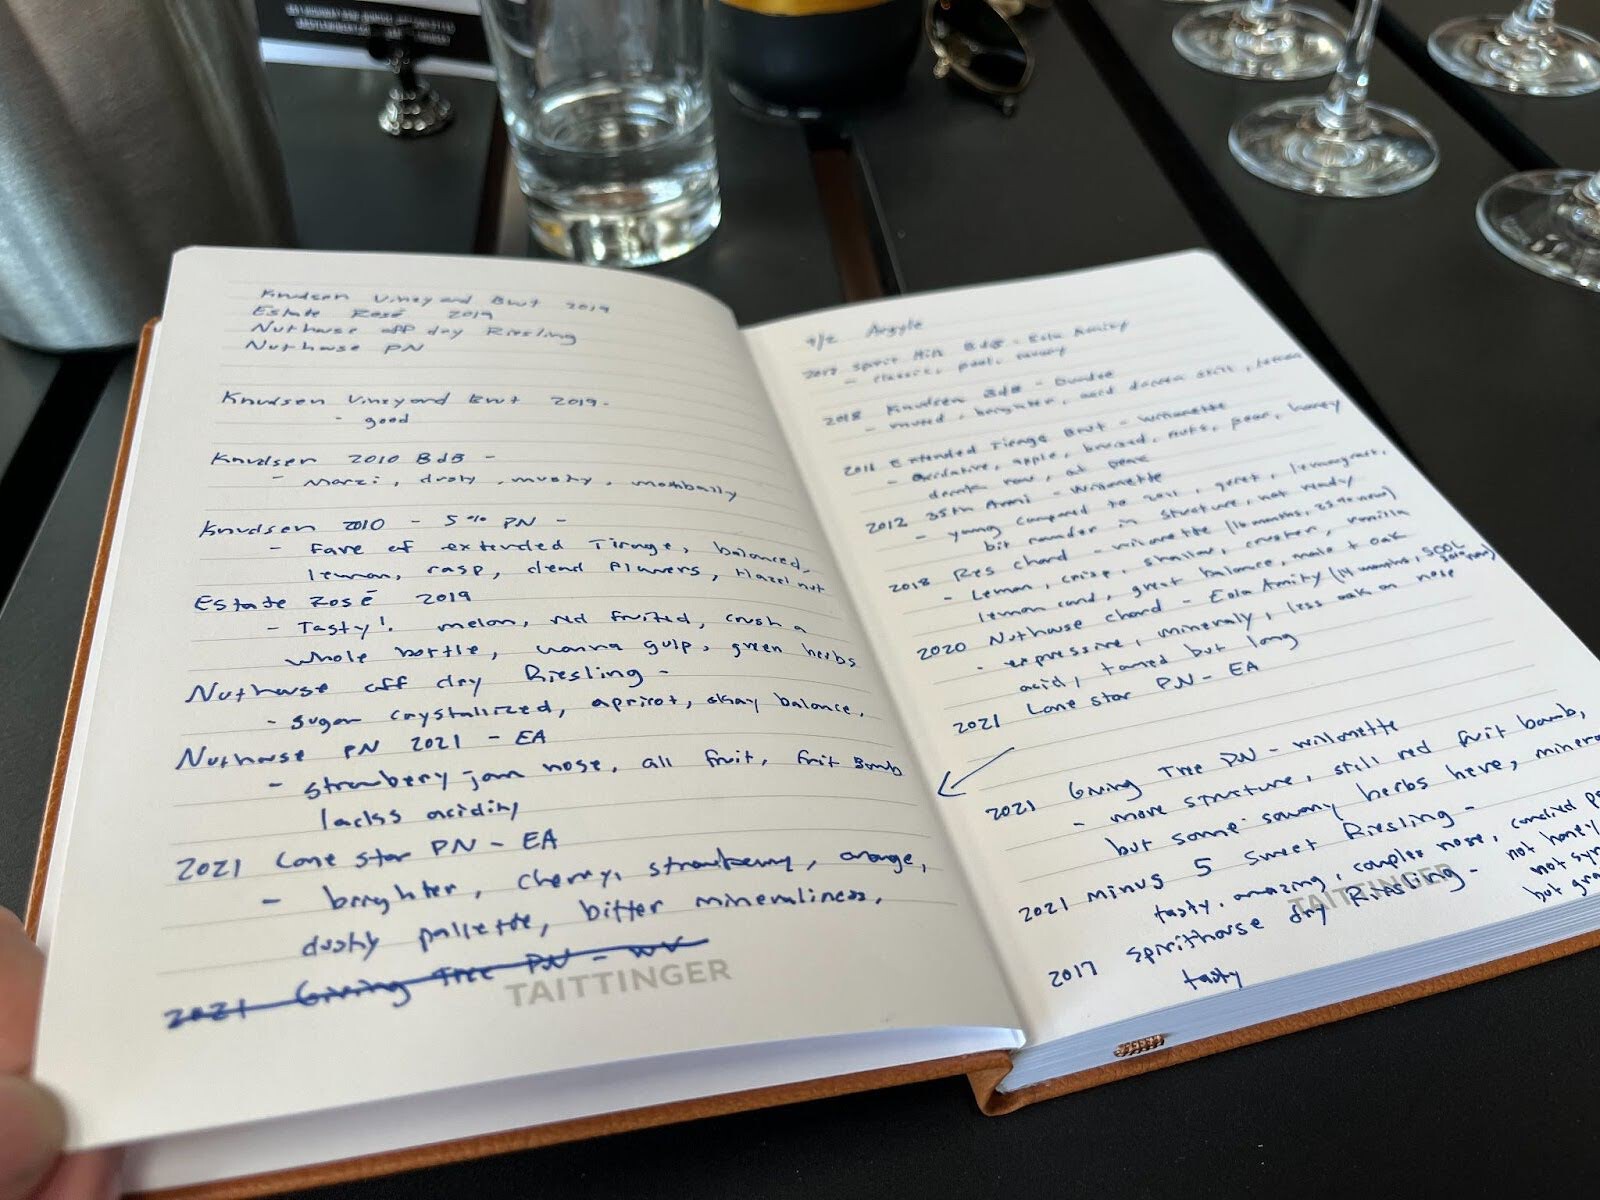 Knudsen Vineyard Brut 2019
Estate Rosé 2019
Nuthouse off dry Riesling
Nuthouse PN
Knudsen Vineyard Brut 2019-
- good
Knudsen 2010 BdB -
- Marzi, dusty, musky, mothbally
Knudsen 2010 - 5% PN -
- Fave of extended Tirage, balanced,
lemon, rasp, dead flowers, Hazelnut
Estate Rosé 2019
- Tasty! melon, red fruited, crush a
whole bottle, wanna gulp, green herbs
Nuthouse off dry Riesling -
- sugar crystallized, apricot, okay balance.
Nuthouse PN 2021 - EA
- strawbery jam nose, all fruit, frit Bomb
lacks acidity
2021 Lone star PN - EA
- brighter, cherry, strawberry, orange,
dusty pallette, bitter mineraliness.
2021 Giving Tree PN - WV
TAITTINGER
Argyle
2017 Spirit Hill BdB - Eola Amity
- classic,
2018 Knudsen BdB - Dundee
- muted, brighter, acid
2011 Extended Tirage Brut - Willamette
- oxidative, apple, bruised, nuts, pear, honey
drink now, at peak
2012 35th Anni - Willamette
- young compared to 2011, lemongrass,
bit rounder in structure, not ready
2018 Res chard - Willamette (16 months, 25% new)
- Lemon, crisp, vanilla
lemon curd, great balance, malo + oak
2020 Nuthouse chard - Eola Amity (14 months,
- expressive, mineraly, less oak on nose
acid, tamed but long
2021 Lone star PN - EA
2021 Giving Tree PN - Willamette
- more structure, still red fruit bomb,
but some savory herbs here,
2021 minus 5 sweet Riesling -
tasty, amazing, complex nose, candied
not honey
2017 spirithouse dry Riesling -
not
but
tasty
TAITTINGER